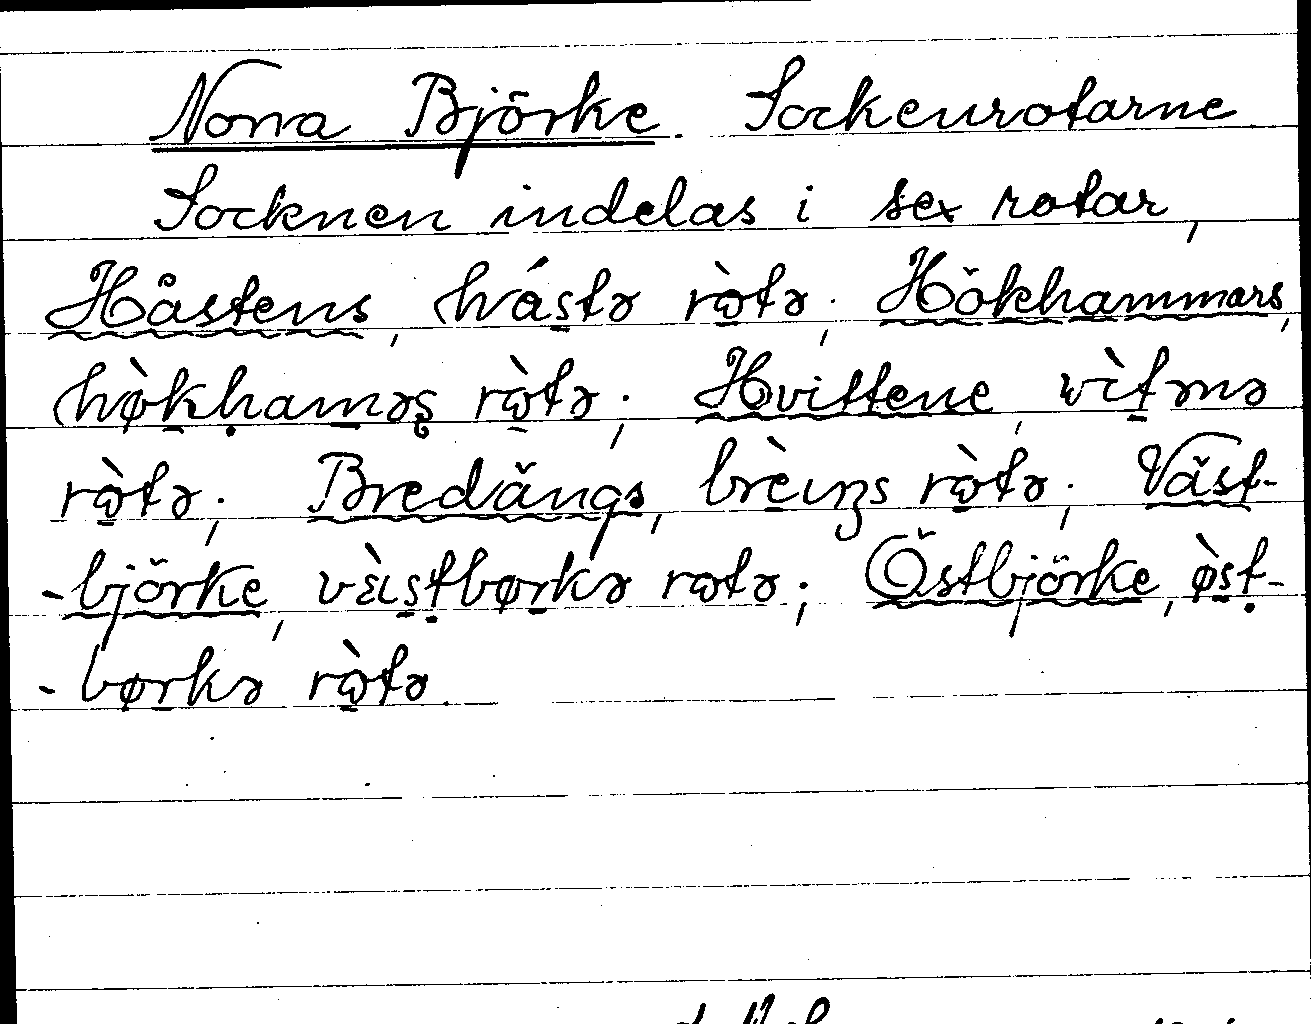 Norra Björke. Sockenrotarne
Socknen indelas i sex rotar,
Håstens, håstə ròtə; Hökhammars,
hǿkhaməs ròtə; Hvittene, vìtənə
ròtə; Bredängs, brèɩŋs ròtə; Väst-
-björke, vɛ̀ɩstbørkə rotə; Östbjörke, ø̀st-
-børkə ròtə.